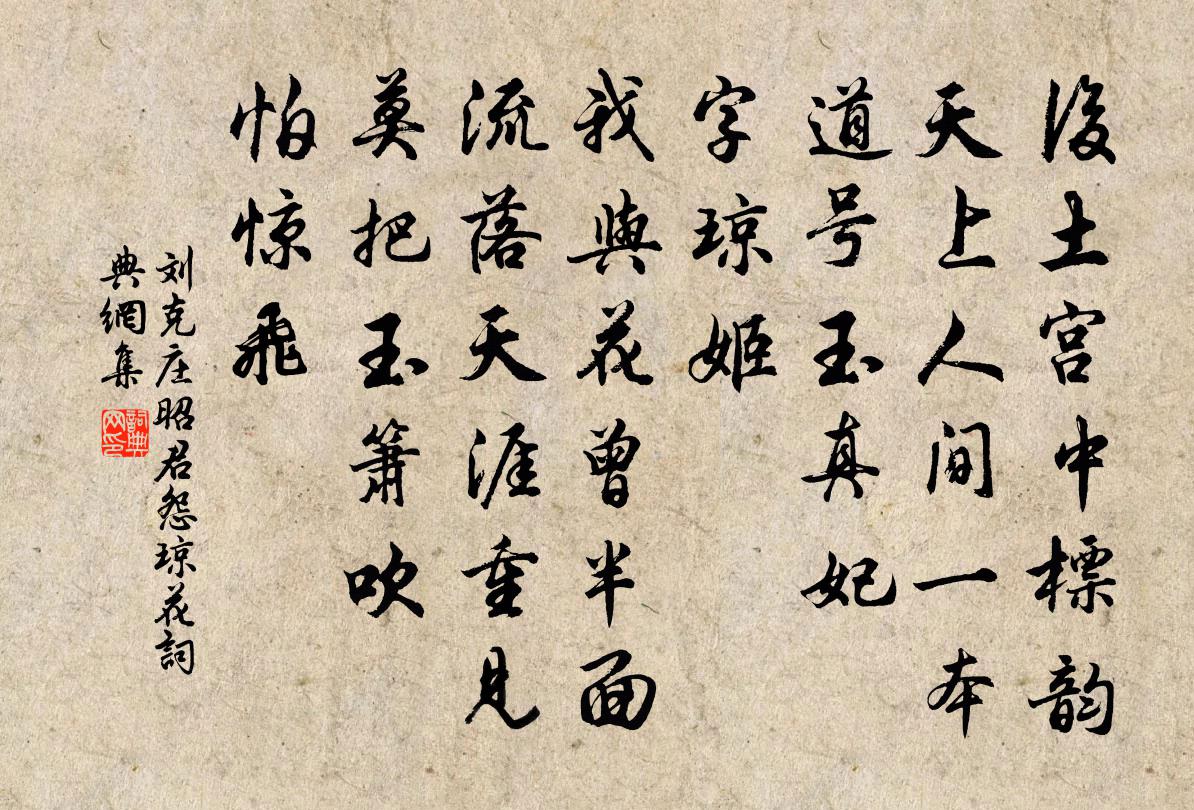 後土宫中標韵
天上人间一本
道号玉真妃
字琼姬
我與花曾半面
流落天涯重见
莫把玉箫吹
怕惊飛
刘克庄昭君怨琼花詞
典網集
詞典网印